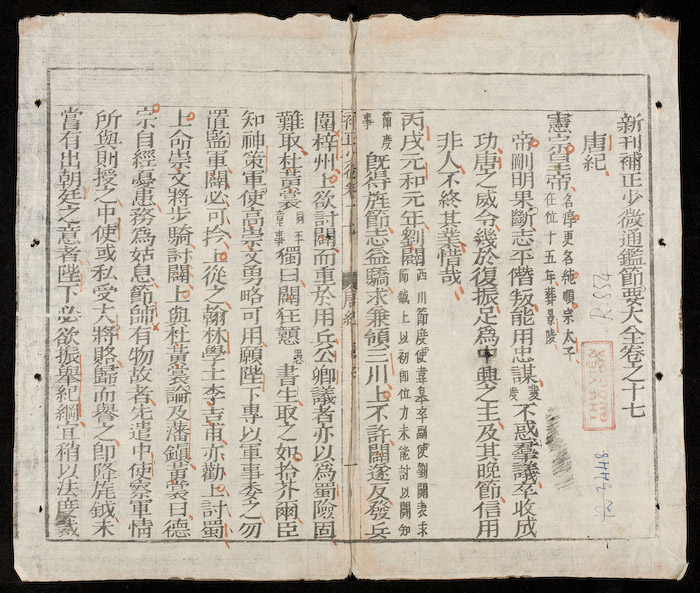 新刊補正少微通鑑節要大全卷之十七
唐紀
憲宗皇帝 名淳更名純順宗太子
在位十五年葬景陵
帝剛明果斷志平僭叛能用忠謀不惑羣議卒收成
功唐之威令幾於復振足為中興之主及其晚節信用
非人不終其業惜哉
丙戌元和元年劉闢 西川節度使韋皋卒副使劉闢表求
節鉞上以初卽位力未能討以闢知
節度
事
既得旌節志益驕求兼領三川上不許闢遂反發兵
唐紀 一
圍梓州上欲討闢而重於用兵公卿議者亦以為蜀險固
難取杜黃裳 同平
章事 獨曰闢狂戇 書生取之如拾芥爾臣
知神策軍使高崇文勇略可用願陛下專以軍事委之勿
置監軍闢必可擒上從之翰林學士李吉甫亦勸上討蜀
上命崇文將步騎討闢上與杜黃裳論及藩鎮黃裳曰德
宗自經憂患務為姑息節帥有物故者先遣中使察軍情
所與則授之中使或私受大將賂歸而譽之卽降旄鉞未
嘗有出朝廷之意者陛下必欲振舉紀綱宜稍以法度裁
R.554